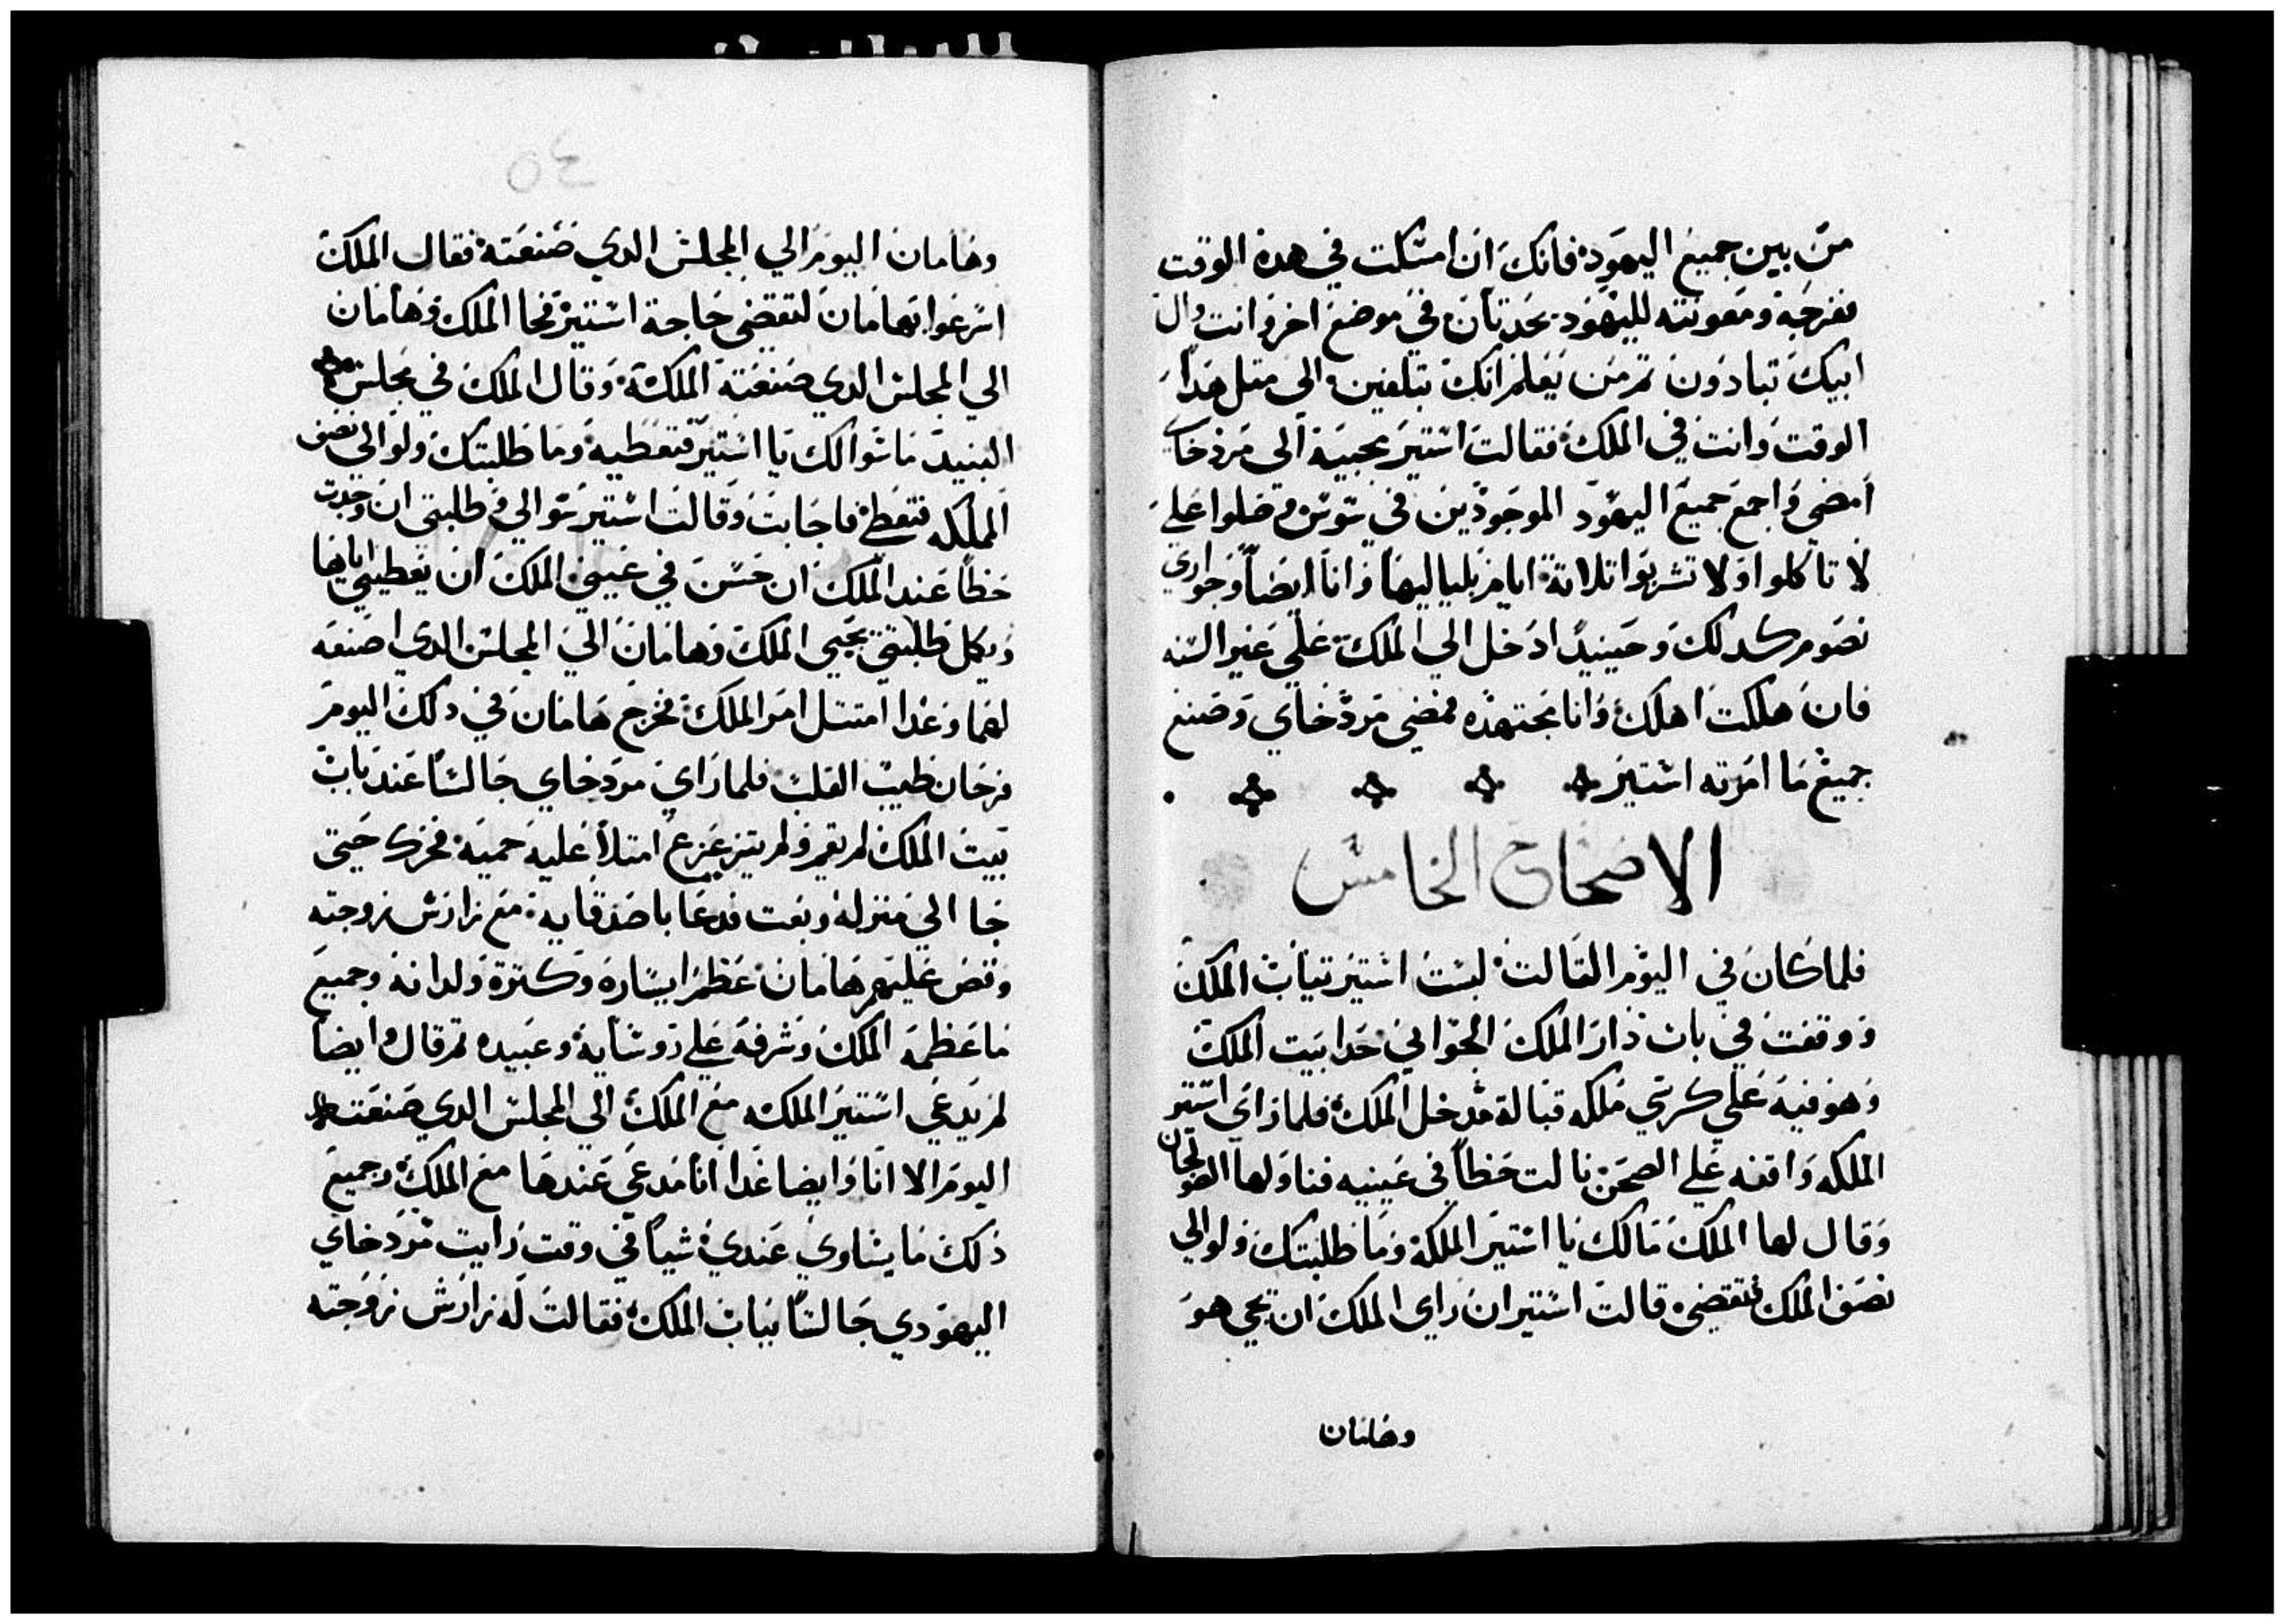 من بين جميع اليهود فانك ان امسكت في هده الوقت
ففرجة ومعونته لليهود يحدتان في موضع اخر وانت وال
ابيك تبادون تم من يعلم انك تبلغين الى متل هدا
الوقت وانت في الملك فقالت استير مجيبة الى مردخاي
امضي واجمع جميع اليهود الموجودين في سوس وصلوا علي
لا تاكلوا ولا تشربوا تلاتة ايام بلياليها وانا ايضا وجواري
نصوم كدلك وحينيدا ادخل الي الملك علي غير السنه
فان هلكت اهلك وانا مجتهده فمضي مردخاي وصنع
جميع ما امرته استير
الاصحاح الخامس
فلما كان في اليوم التالت لبست استير تياب الملك
ووقفت في باب دار الملك الجواني حدا بيت الملك
وهو فيه علي كرسي ملكه قبالة مدخل الملك فلما راي استير
الملكه واقفه علي الصحن نالت حظا في عينيه فناولها الصولجان
وقال لها الملك مالك يا استير الملكة وما طلبتك ولو الي
نصف الملك فتقضي قالت استير ان راي الملك ان يجي هو
وهامان
٤٥
وهامان اليوم الي المجلس الدي صنعته فقال الملك
اسرعوا بهامان لتقضي حاجة استير فجا الملك وهامان
الي المجلس الدي صنعته الملكة وقال الملك في مجلس
النبيد ما سوالك يا استير فتعطيه وما طلبتك ولو الي نصف
المملكه فتعطي فاجابت وقالت استير سوالي وطلبتي ان وجدت
حظا عند الملك ان حسن في عيني الملك ان يعطيني اياها
ويكمل طلبتي يجي الملك وهامان الي المجلس الدي اصنعه
لهما وغدا امتتل امر الملك فخرج هامان في دلك اليوم
فرحان طيب القلب فلما راي مردخاي جالسا عند باب
بيت الملك لم يقم ولم يتزعزع امتلا عليه حمية فخزك حتي
جا الي منزله وبعت فدعا باصدقايه مع زارش زوجته
وقص عليهم هامان عظم ايساره وكترة ولدانه وجميع
ما عظمه الملك وشرفه علي روسايه وعبيده تم قال وايضا
لم يدعي استير الملكه مع الملك الي المجلس الدي صنعته
اليوم الا انا وايضا غدا انا مدعي عندها مع الملك وجميع
ذلك ما يساوي عندي شيا في وقت رايت مردخاي
اليهودي جالسا بباب الملك فقالت له زارش زوجته